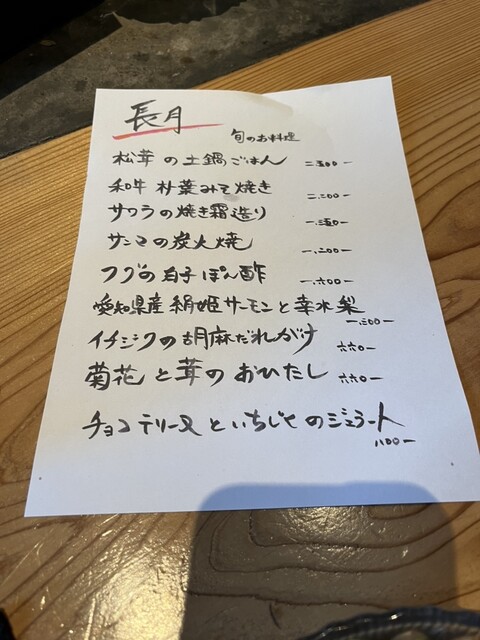 長月
旬のお料理
松茸の土鍋ごはん 二.五00-
和牛朴葉みそ焼き 二.三00-
サワラの焼き霜造り 一.三五0-
サンマの炭火焼 一.二00-
フグの白子ぽん酢 一.六00-
愛知県産絹姫サーモンと幸水梨
一.三00-
イチジクの胡麻だれがけ 六六0-
菊花と茸のおひたし 六六0-
チョコテリーヌといちじくのジェラート
八00-